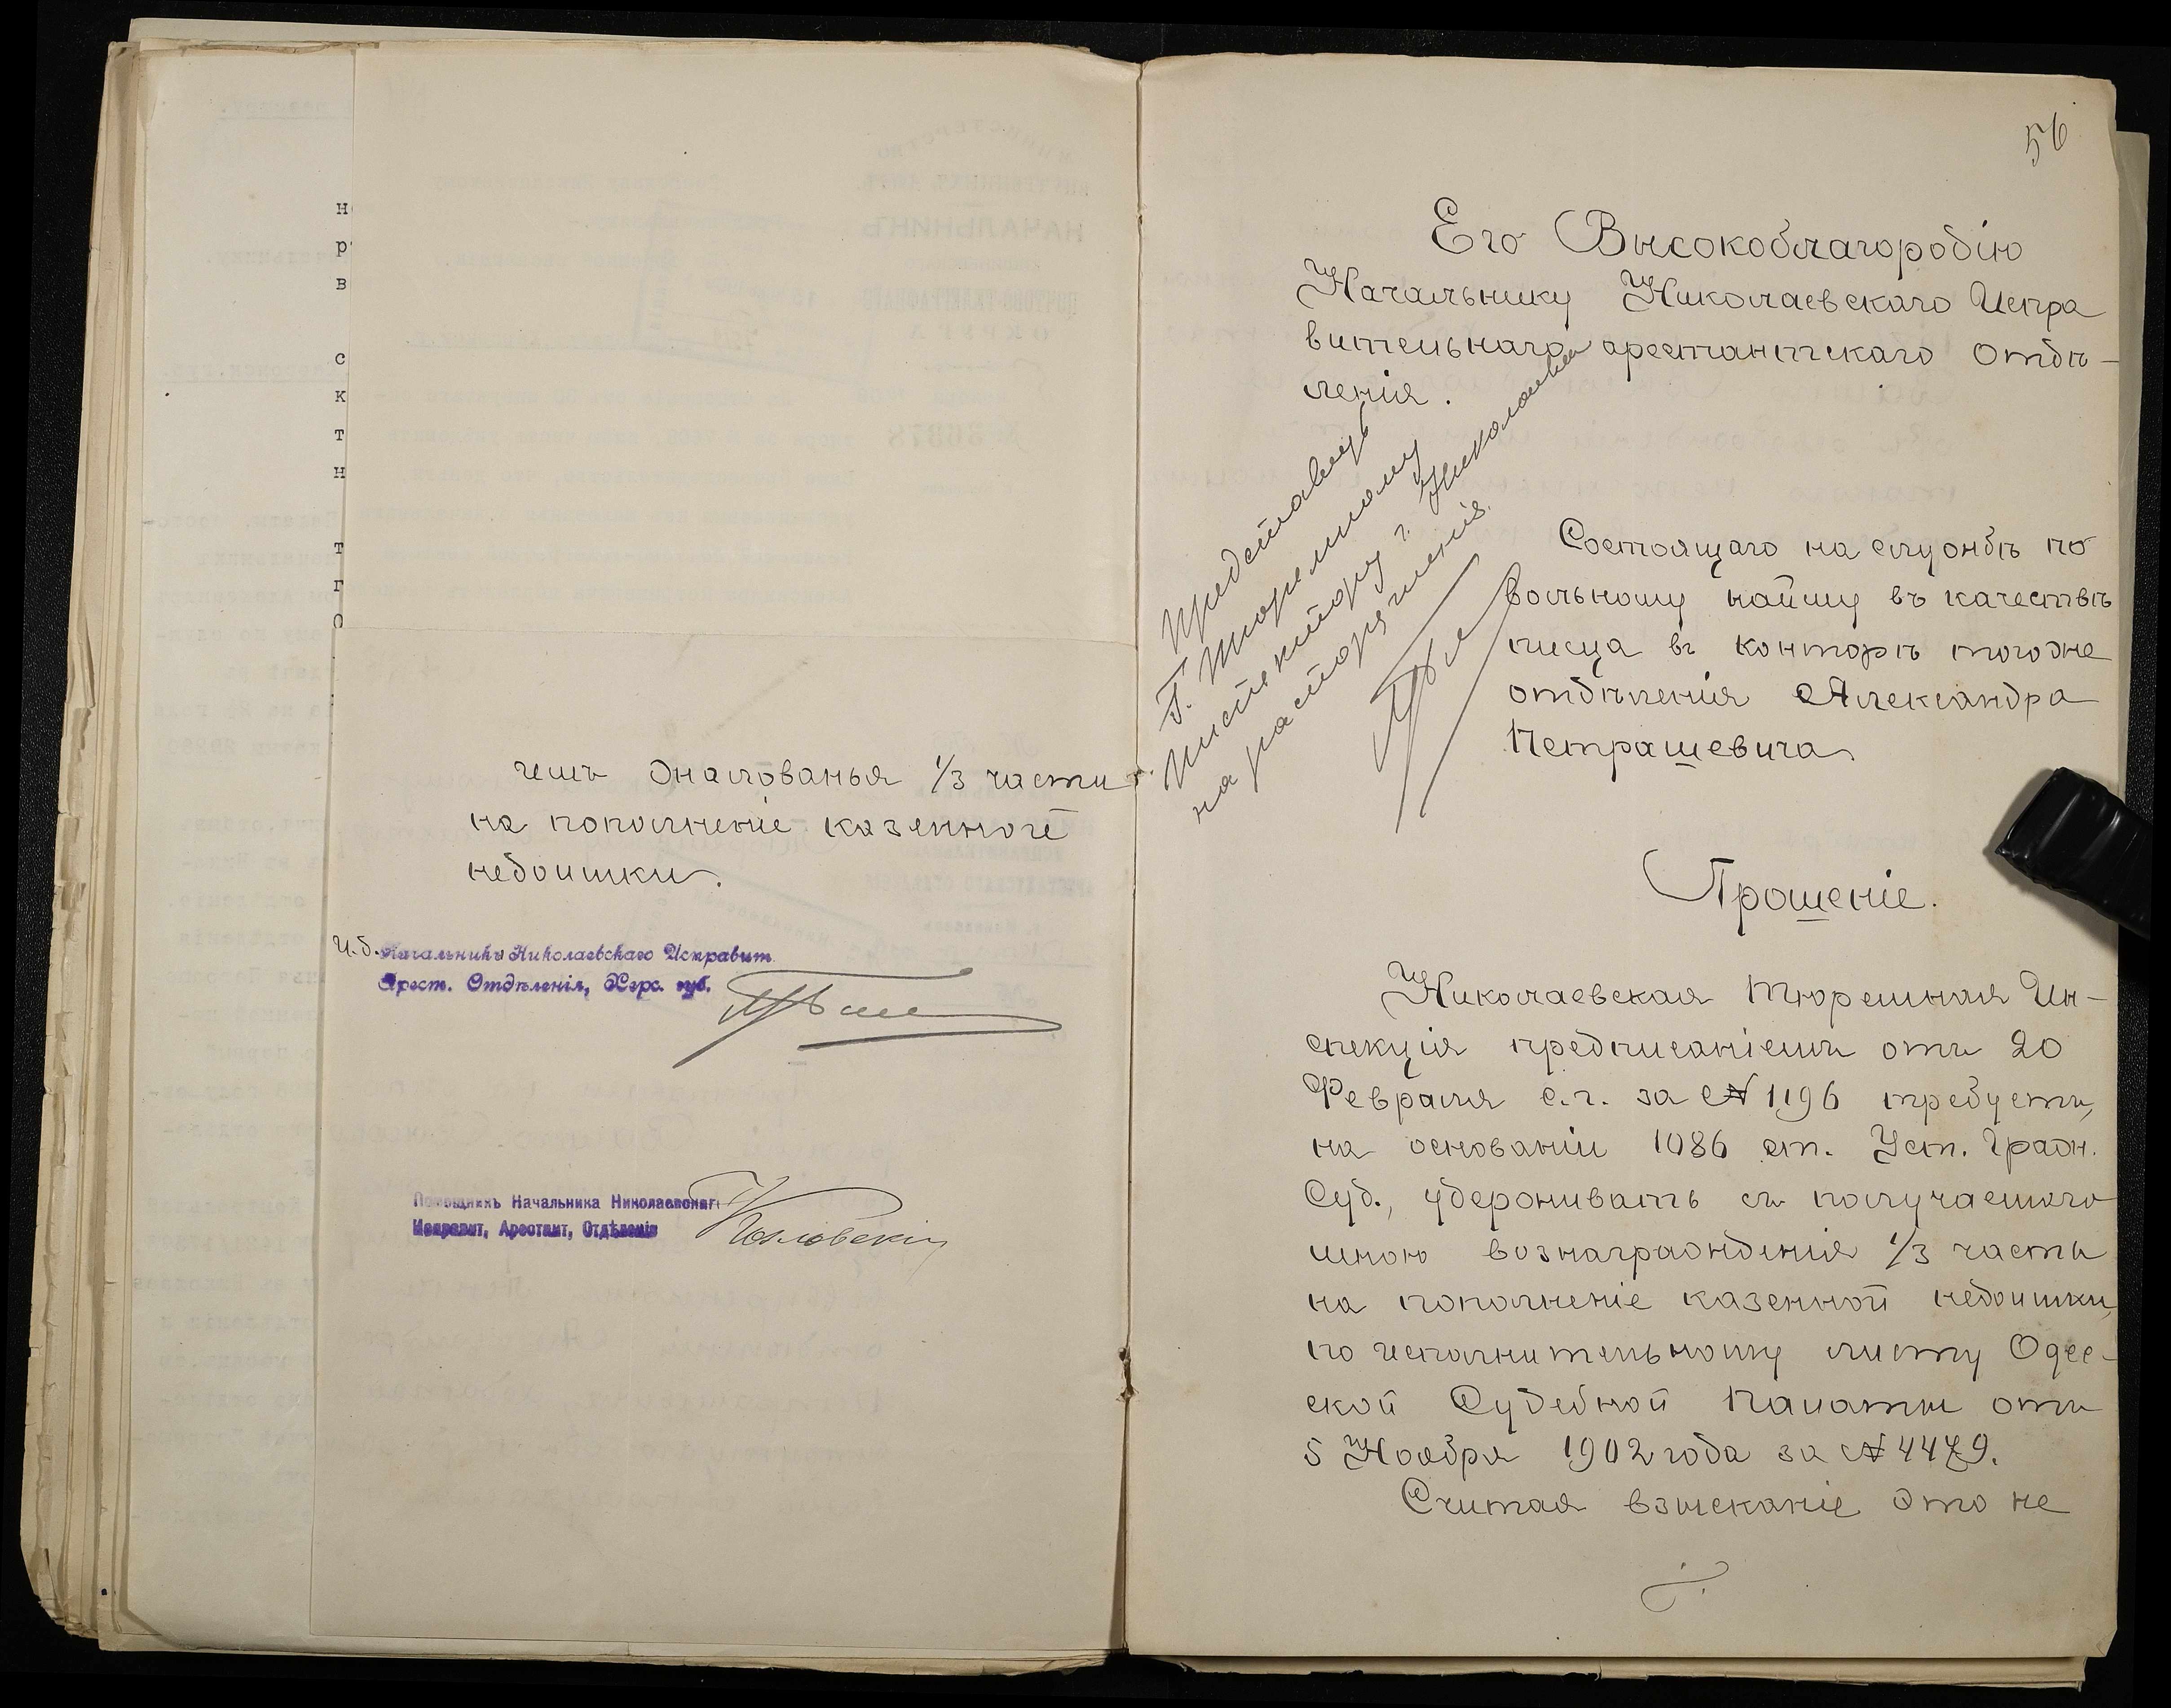 имъ жалованья 1/3 части
на пополненіе казенной
недоимки.
И.д. Начальникъ Николаевскаго Исправит.
Арест. Отдѣленія, Херс. губ.
Помощникъ Начальника Николаевскаго
Исправит, Арестант, Отдѣленія
56
Его Высокоблагородію
Начальнику Николаевскаго Испра
вительнаго арестантскаго отдѣ-
ленія.
Представляю
Г. Тюремному
Инспектору г. Николаева
на распоряженія.
Состоящаго на службѣ по
вольному найму въ качествѣ
писца въ конторѣ того же
отдѣленія Александра
Петрашевича
Прошеніе.
Николаевская Тюремная Ин-
спекція предписаніемъ отъ 20
Февраля с.г. за № 1196 требуетъ,
на основаніи 1086 ст. Уст. Гражд.
Суд., удерживать съ получаемаго
мною вознагражденія 1/3 часть
на пополненіе казенной недоимки,
по исполнительному листу Одес-
ской Судебной Палаты отъ
5 Ноября 1902 года за № 4479.
Считая взысканіе это не